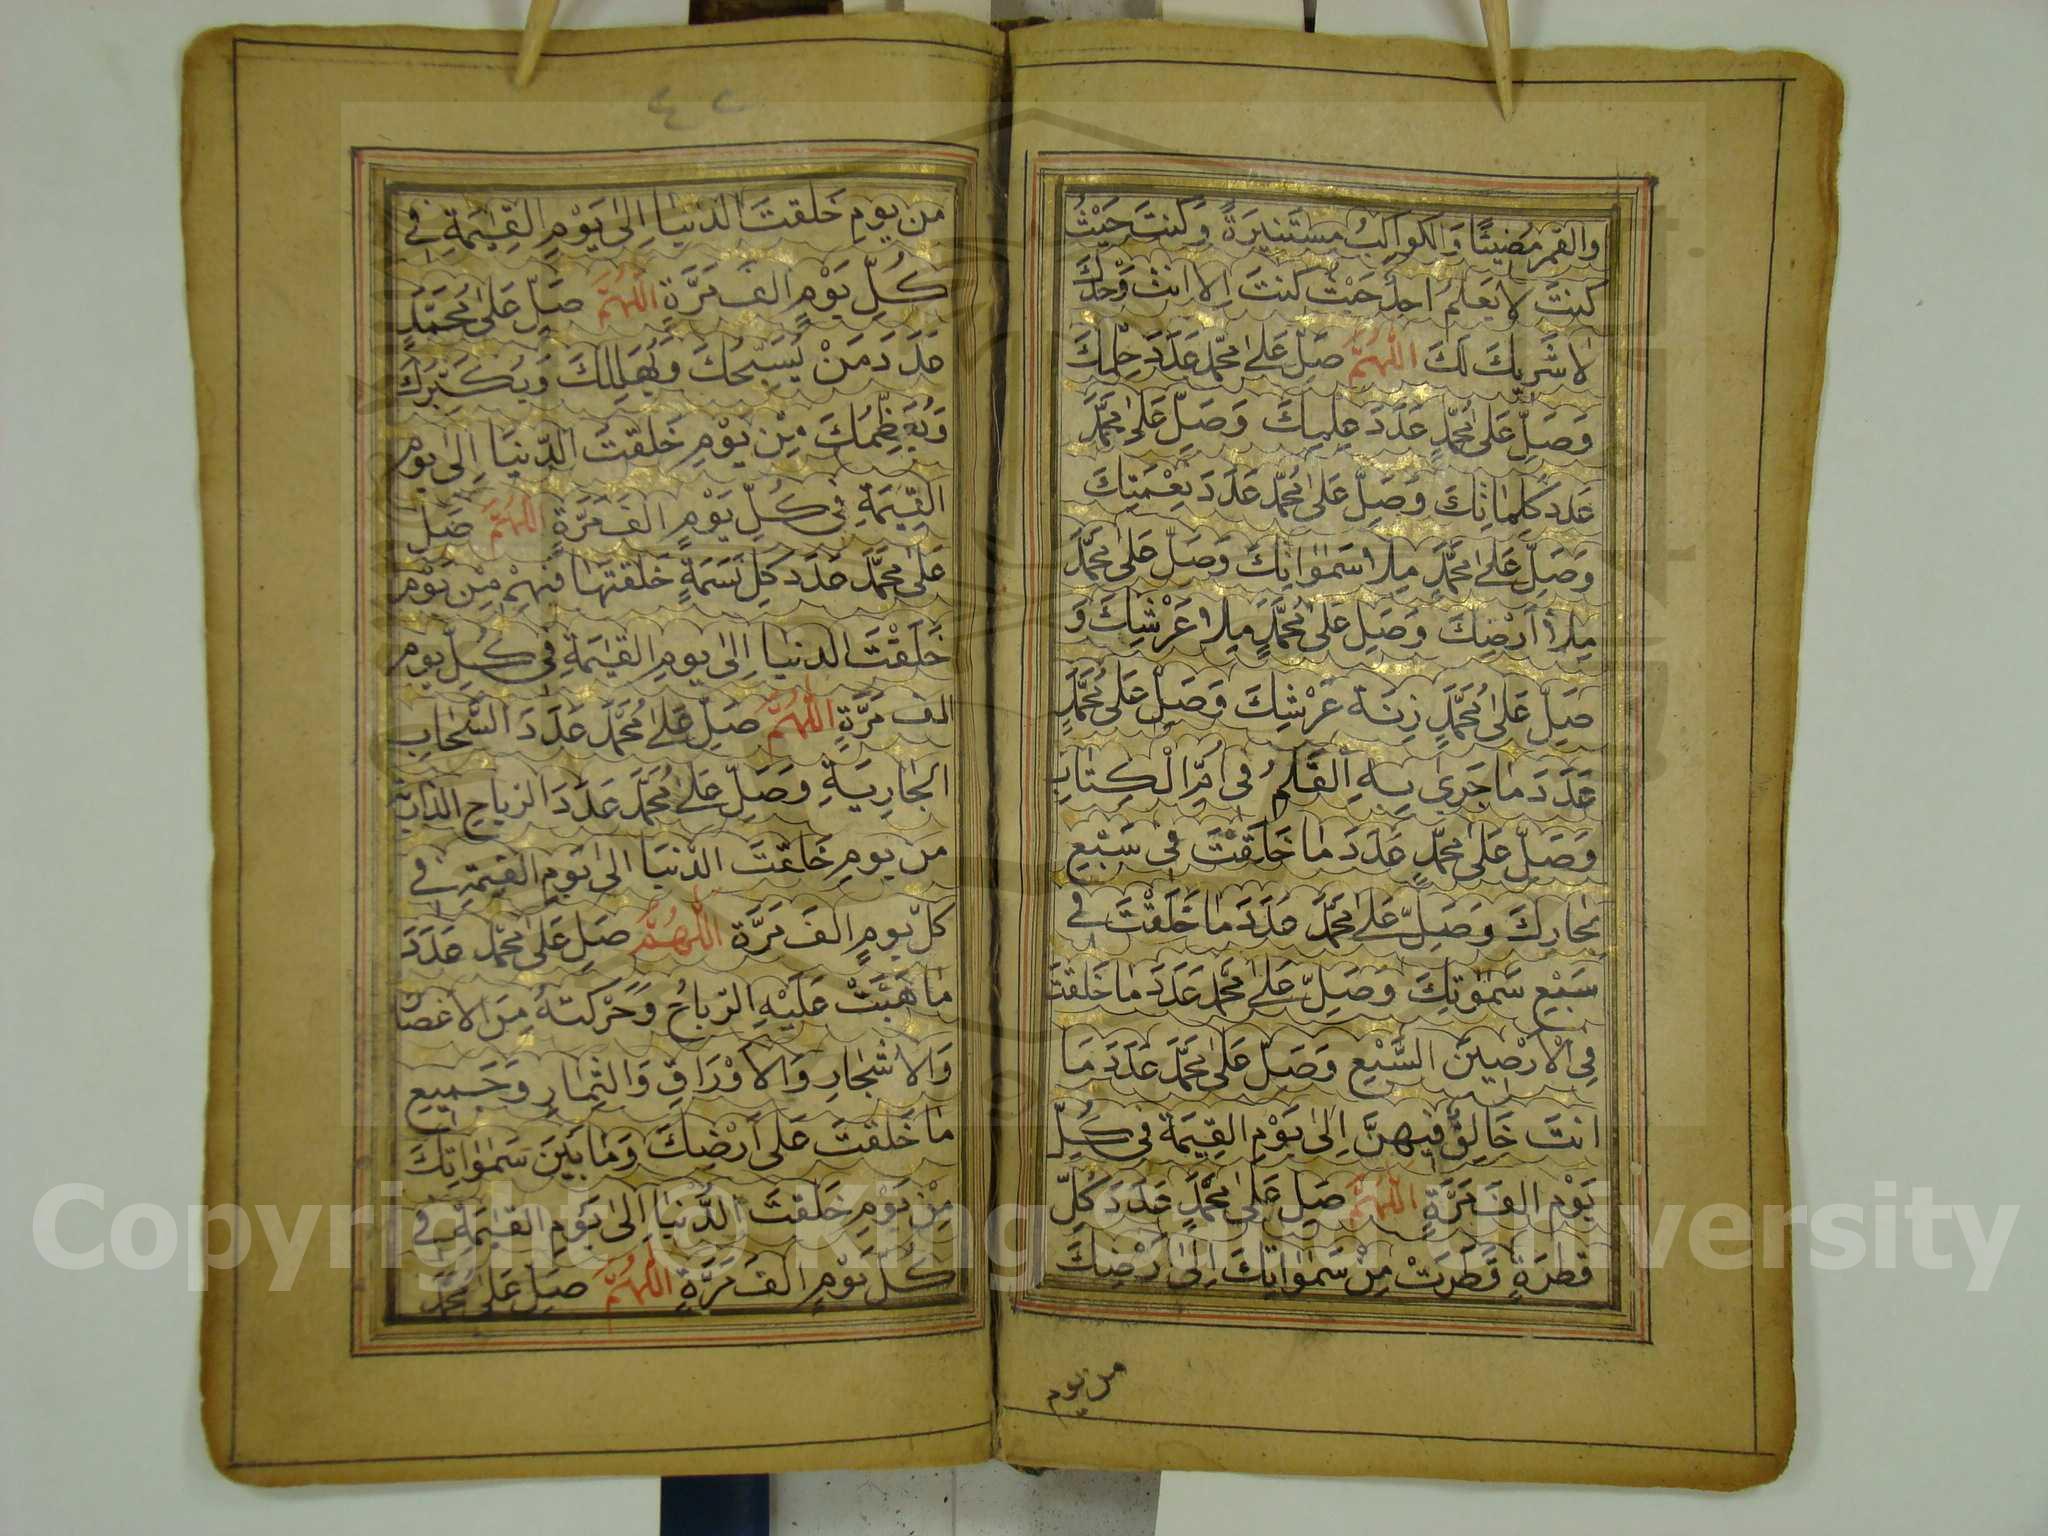 والقمر مُضِيئًا وَالكَواكِبُ مُستَنيرَةً وَكنتَ حَيْثُ
كنتَ لا يَعلمُ احدٌ حَيْث كنتَ اِلا انتَ وَحْدَكَ
لا شَرِيكَ لَكَ اللّهُمَّ صَلِّ عَلىٰ محمّد عَدَدَ حِلمِكَ
وَصَلِّ عَلىٰ مُحَمّدٍ عَدَدَ عِلمِكَ وَصَلِّ عَلىٰ مُحَمَّدٍ
عَدَدَ كَلِمَاتِكَ وَصَلِّ عَلىٰ مُحَمّد عَدَدَ نِعْمَتِكَ
وَصَلِّ عَلىٰ مُحَمَّدٍ مِلأَ سَمٰوَاتِكَ وَصَلِّ عَلىٰ مُحَمَّدٍ
مِلأَ اَرْضِكَ وَصَلِّ عَلىٰ مُحَمَّدٍ مِلأَ عَرْشِكَ وَ
صَلِّ عَلىٰ مُحَمَّدٍ زِنَة عَرْشِكَ وَصَلِّ عَلىٰ مُحَمَّدٍ
عَدَدَ مَا جَرىٰ بِهِ الْقَلَمُ فى اُمِّ الْكِتابِ
وَصَلِّ عَلىٰ مُحَمّدٍ عَدَدَ مَا خَلَقْتَ فى سَبْعِ
بِحارِكَ وَصَلِّ عَلىٰ مُحَمَّدٍ عَدَدَ مَا خَلَقْتَ فى
سَبْعِ سَمٰوٰتِكَ وَصَلِّ عَلىٰ محمّد عَدَدَ مَا خَلَقتَ
فِى الْاَرْضِينَ السَّبْعِ وَصَلِّ عَلىٰ مُحَمَّدٍ عَدَدَ مَا
انتَ خَالِقٌ فيهِنَّ اِلىٰ يَوْمِ القِيٰمَةِ فى كُلِّ
يَوْمٍ الفَ مَرَّةٍ اللّهُمَّ صَلِّ عَلىٰ مُحَمَّدٍ عَدَدَ كُلِّ
قَطرَةٍ قَطَرَتْ مِنْ سَمٰوَاتِكَ اِلىٰ اَرْضِكَ
من يوم
٤٢
من يومِ خَلَقتَ الدّنيَا اِلىٰ يَوْمِ القِيٰمَةِ فى
كُلِّ يَوْمٍ الفَ مَرَّةٍ اللّهُمَّ صَلِّ عَلىٰ مُحَمَّدٍ
عَدَدَ مَنْ يُسَبِّحُكَ وَيُهَلِّلُكَ وَيُكَبِّرُكَ
وَيُعَظِّمُكَ مِنْ يَوْمِ خَلَقتَ الدّنيَا اِلىٰ يومِ
القِيٰمَةِ فى كُلِّ يَوْمٍ الفَ مَرَّةٍ اللّهُمَّ صَلِّ
عَلىٰ مُحَمَّدٍ عَدَدَ كلِّ نَسَمَةٍ خَلَقتَهَا فيهِمْ مِنْ يَوْمِ
خَلَقْتَ الدنيَا اِلىٰ يومِ القيٰمَةِ فى كُلِّ يومٍ
الف مَرَّةٍ اللّهُمَّ صَلِّ عَلىٰ مُحَمَّدٍ عَدَدَ السَّحَابِ
الجَارِيَةِ وَصَلِّ عَلىٰ مُحَمَّدٍ عَدَدَ الرِيَاحِ الذّارِيَةِ
من يومِ خَلَقتَ الدّنيَا الىٰ يَومِ القيٰمَةِ فى
كلّ يومٍ الفَ مَرَّة اللّهُمَّ صَلِّ عَلىٰ مُحَمّد عَدَدَ
مَا هَبَّتْ عَلَيْهِ الرّياحُ وَحَرَّكَتهُ مِنَ الاَغصَانِ
وَالاَشْجَارِ وَالاَوْرَاقِ وَالثِّمَارِ وَجَمِيعِ
مَا خَلَقتَ عَلىٰ اَرْضِكَ وَمَا بَيْنَ سَمٰوَاتِكَ
مِنْ يَوْمِ خَلَقتَ الدُّنْيَا اِلىٰ يَومِ القيٰمَةِ فى
كُلِّ يَوْمٍ الفَ مَرَّةٍ اللّهُمَّ صَلِّ عَلىٰ مُحَمَّدٍ
Copyright © King Saud University